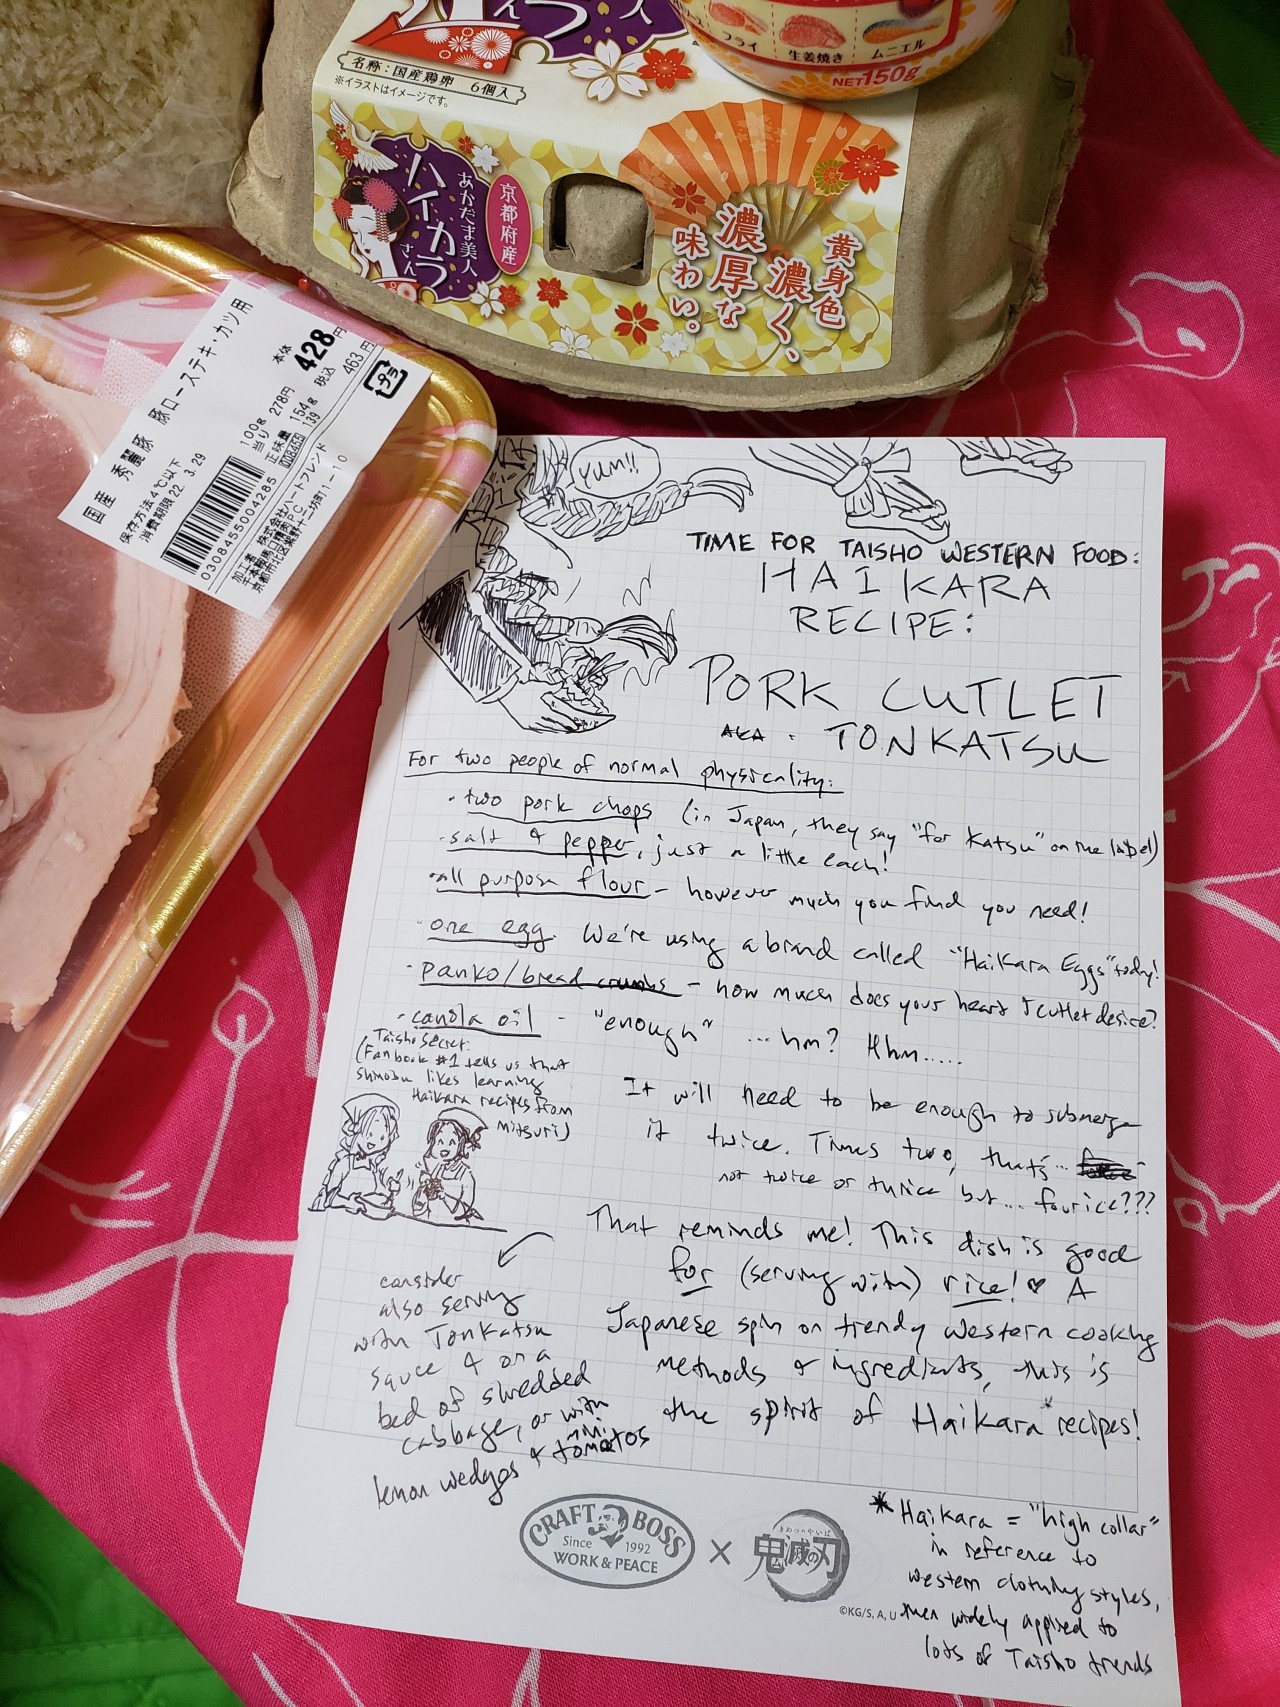 名称:国産鶏卵 6個入
※イラストはイメージです。
フライ
生姜焼き
ムニエル
NET150g
京都府産
あかだま美人
ハイカラ
さん
黄身色
濃く、
濃厚な
味わい。
国産 秀麗豚 豚ロースステキ・カツ用
保存方法4℃以下
消費期限 22. 3.29
100g当り 278円
正味量 154g
本体 428円
税込 463円
プラ
0308455004285
加工者 株式会社ハートフレンド
YUM!!
TIME FOR TAISHO WESTERN FOOD:
HAIKARA
RECIPE:
PORK CUTLET
AKA · TONKATSU
For two people of normal physicality:
· two pork chops (in Japan, they say "for Katsu" on the label)
· salt & pepper, just a little each!
· all purpose flour – however much you find you need!
· one egg. We're using a brand called "Haikara Eggs" today!
· panko/bread crumbs – how much does your heart & cutlet desire?
· canola oil – "enough" ... hm? Hhm.....
Taisho Secret:
(Fanbook #1 tells us that
Shinobu likes learning
Haikara recipes from
Mitsuri)
It will need to be enough to submerge
it twice. Times two, that's...
not twice or thrice but... fourice???
That reminds me! This dish is good
for (serving with) rice! ♥ A
Japanese spin on trendy western cooking
methods & ingredients, this is
the spirit of Haikara* recipes!
consider
also serving
with Tonkatsu
sauce & on a
bed of shredded
cabbage, or with
mini
lemon wedges & tomatos
* Haikara = "high collar"
in reference to
western clothing styles,
then widely applied to
lots of Taisho trends
CRAFT BOSS
Since 1992
WORK & PEACE
×
きめつのやいば
鬼滅の刃
©KG/S, A, U